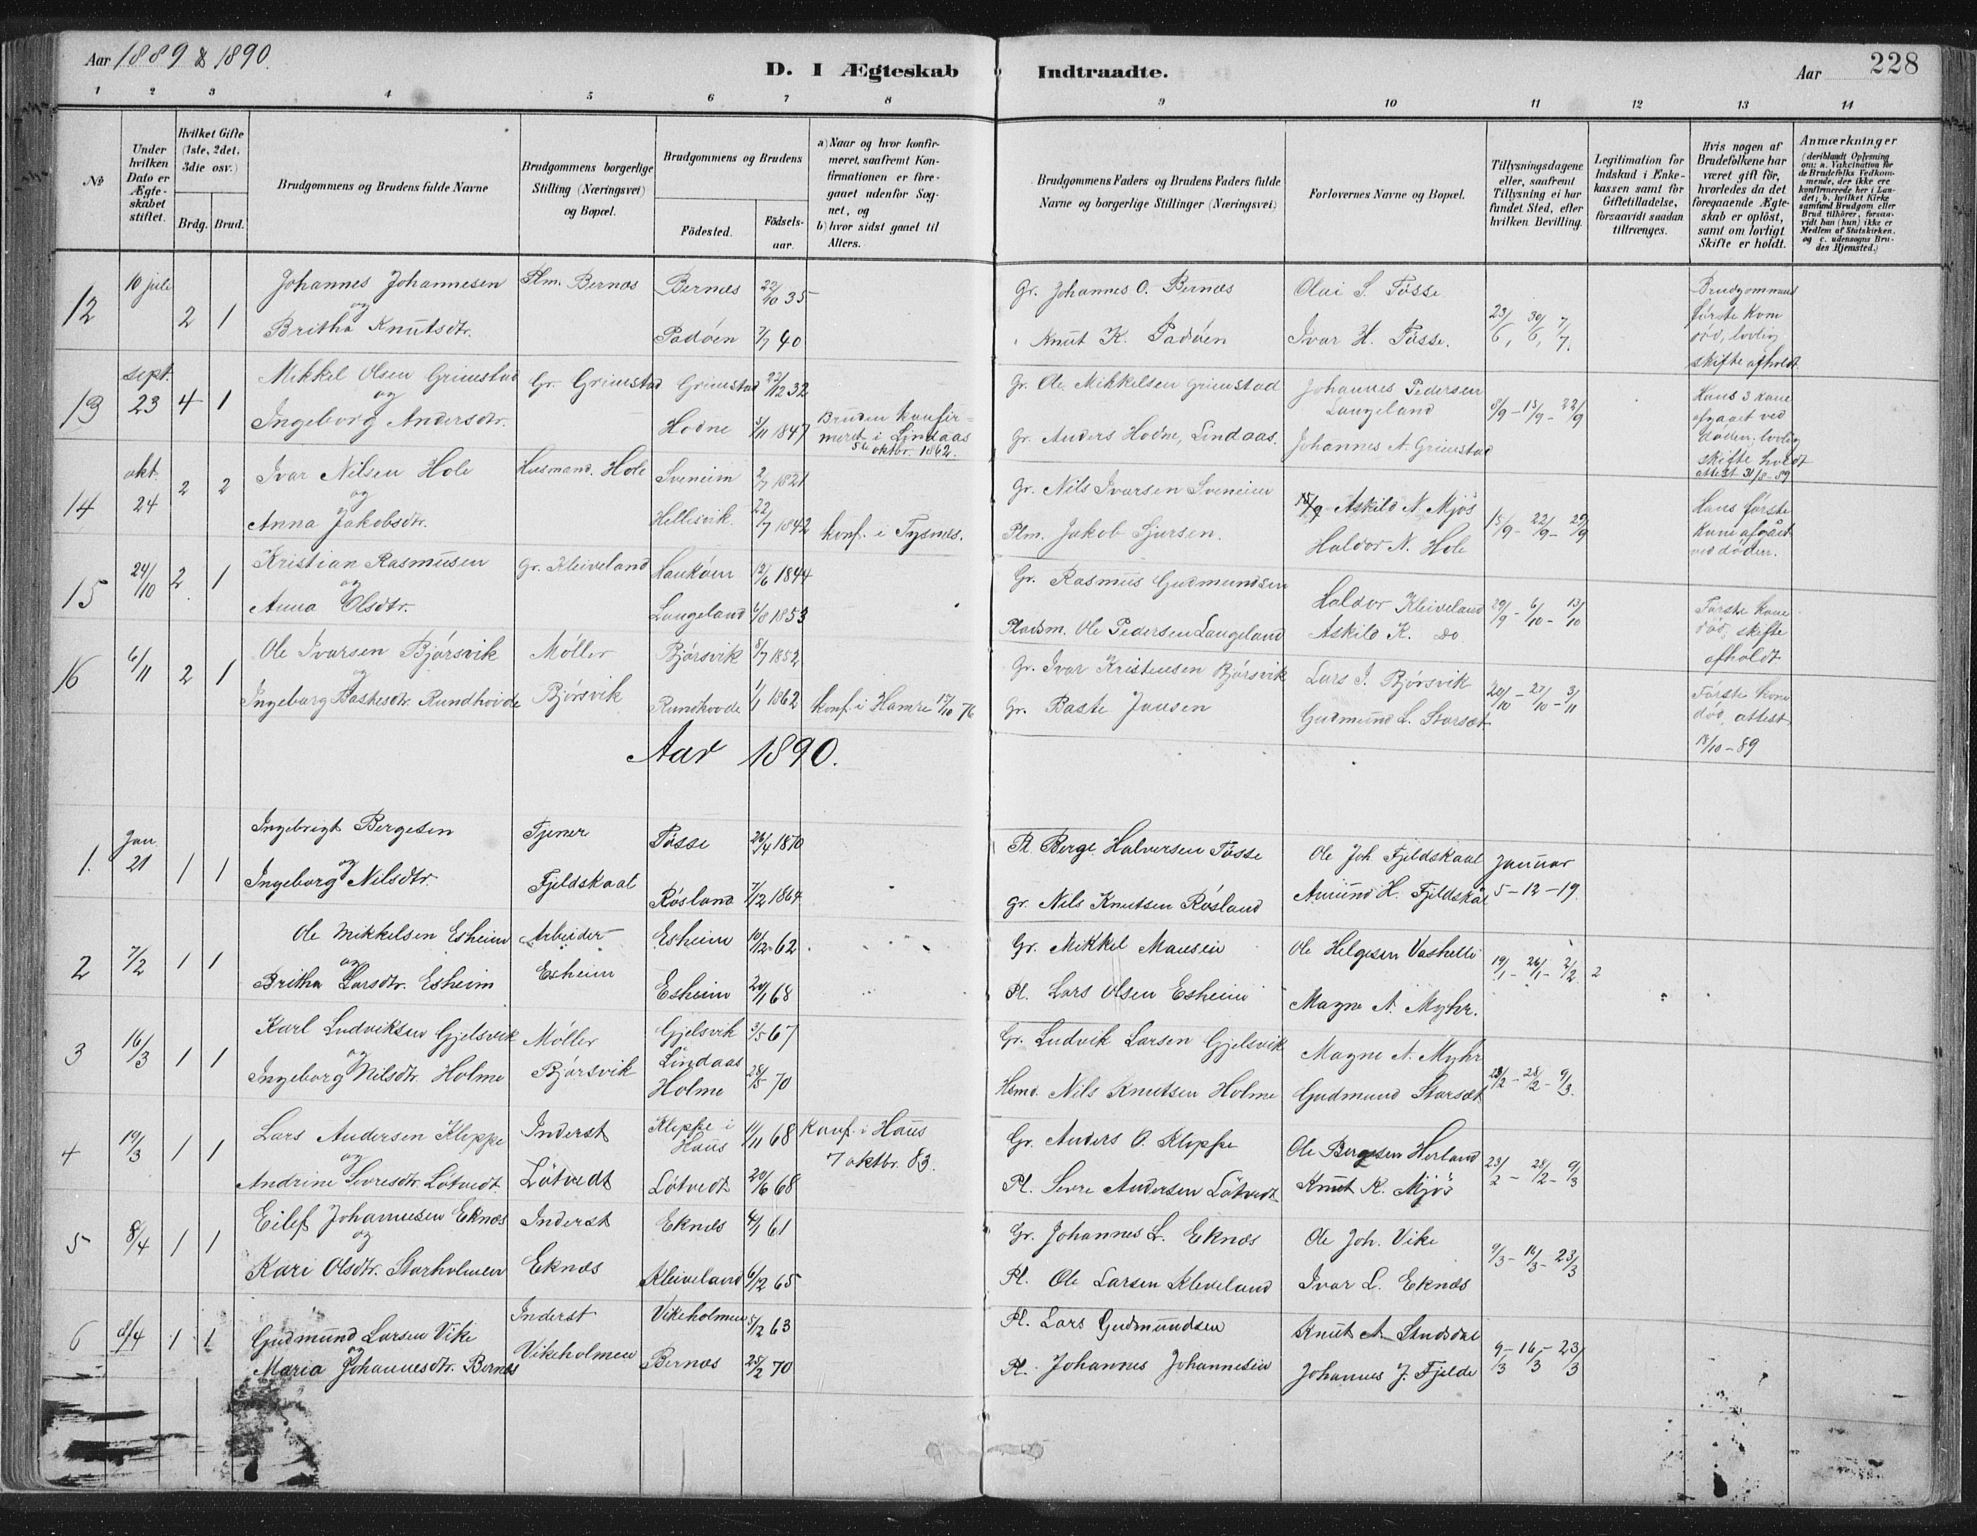 Aar 1889 & 1890.
D. I Ægteskab Indtraadte.
Aar 228
1 2 3 4 5 6 7 8 9 10 11 12 13 14
No
Under hvilken Dato er Ægteskabet stiftet.
Hvilket Gifte (1ste, 2det, 3die osv.)
Brdg. Brud.
Brudgommens og Brudens fulde Navne
Brudgommens borgerlige Stilling (Næringsvei) og Bopæl.
Brudgommens og Brudens
Fødested. Fødselsaar.
a) Naar og hvor konfirmeret, saafremt Konfirmationen er foregaaet udenfor Sognet, og
b) hvor sidst gaaet til Alters.
Brudgommens Faders og Brudens Faders fulde Navne og borgerlige Stillinger (Næringsvei)
Forlovernes Navne og Bopæl.
Tillysningsdagene eller, saafremt Tillysning ei har fundet Sted, efter hvilken Bevilling.
Legitimation for Indskud i Enkekassen samt for Giftetilladelse, forsaavidt saadan tiltrænges.
Hvis nogen af Brudefolkene har været gift før, hvorledes da det foregaaende Ægteskab er opløst, samt om lovligt Skifte er holdt.
Anmærkninger
(deriblandt Oplysning om: a. Vakcination for de Brudefolks Vedkommende, der ikke ere konfirmerede her i Landet; b. hvilket Kirkesamfund Brudgom eller Brud tilhører, forsaavidt han (hun) ikke er Medlem af Statskirken, og c. udensogns Brudes Hjemsted.)
12 10 juli 2 1 Johannes Johannesen Plm. Bernæs Bernæs 22/10 35 Gr. Johannes O. Bernæs Olai S. Tøsse 23/6, 30/6, 7/7. Brudgommens første kone
og
Britha Knutsdtr. Padøen 7/7 40 Knut K. Padøen Ivar H. Tøsse. død, lovlig skifte afholdt
13 sept. 23 4 1 Mikkel Olsen Grimstad Gr. Grimstad Grimstad 22/12 32 Gr. Ole Mikkelsen Grimstad Johannes Pedersen Langeland 8/9 - 15/9 - 22/9 Hans 3 kone afgaaet ved
og
Ingeborg Andersdtr. Hodne 3/11 1847 Bruden konfirmeret i Lindaas 5te oktbr. 1862. Gr. Anders Hodne, Lindaas. Johannes A. Grimstad døden, lovlig skifte holdt attest 31/8-89
14 okt. 24 2 2 Ivar Nilsen Hole Husmand. Hole Sveneim 2/7 1821 Gr. Nils Ivarsen Sveneim Askild N. Mjøs 15/9 - 22/9 - 29/9 Hans første
og
Anna Jakobsdtr. Hellesvik. 22/7 1842 konf. i Tysnæs. Plm. Jakob Sjursen. Haldor N. Hole kone afgået ved døden.
15 24/10 2 1 Kristian Rasmusen Gr. Kleiveland Haukøen 12/6 1844 Gr. Rasmus Gudmundsen Haldor Kleiveland 29/9 - 6/10 - 13/10 Første kone
og
Anna Olsdtr. Langeland 6/8 1853 Pladsm. Ole Pedersen Langeland Askild K. do død, skifte afholdt
16 6/11 2 1 Ole Ivarsen Bjørsvik Møller Bjørsvik 8/7 1852 Gr. Ivar Kristensen Bjørsvik Lars I. Bjørsvik 20/10 - 27/10 - 3/11 Første kone
og
Ingeborg Bastesdtr. Rundhovde Bjørsvik Rundhovde 1/1 1862 konf. i Hamre 15/10 76 Gr. Baste Jansen Gudmund L. Storsæt død, attest 18/10-89
Aar 1890.
1. Jan 21 1 1 Ingebrigt Bergesen Tjener Tøsse 26/4 1870 Pl. Berge Halversen Tøsse Ole Joh. Fjeldskaal Januar
og
Ingeborg Nilsdtr. Fjeldskaal Røsland 7/12 1864 Gr. Nils Knutsen Røsland Amund H. Fjeldskål 5 - 12 - 19.
2 7/2 1 1 Ole Mikkelsen Esheim Arbeider Esheim 10/12 62 Gr. Mikkel Mansen Ole Helgesen Vashelli 19/1 - 26/1 - 2/2 2
og
Britha Larsdtr. Esheim Esheim Esheim 20/1 68 Pl. Lars Olsen Esheim Magne A. Myhr.
3 16/3 1 1 Karl Ludviksen Gjelsvik Møller Gjelsvik Lindaas 3/5 67 Gr. Ludvik Larsen Gjelsvik Magne A. Myhr 23/2 - 28/2 - 9/3.
og
Ingeborg Nilsdtr. Holme Bjørsvik Holme 28/5 70 Hsmd. Nils Knutsen Holme Gudmund Storsæt
4 19/3 1 1 Lars Andersen Kleppe Inderst Kleppe i Haus 11/11 68 Konf. i Haus 7 oktbr. 83. Gr. Anders O. Kleppe Ole Bergesen Herland 23/2 - 28/2 - 9/3
og
Andrine Sevresdtr. Løtvedt Løtvedt Løtvedt 20/6 68 Pl. Sevre Andersen Løtvedt Knut K. Mjøs
5 8/4 1 1 Eilef Johannesen Eknæs Inderst Eknæs 4/1 61 Gr. Johannes L. Eknæs Ole Joh. Vike 9/3 - 16/3 - 23/3
og
Kari Olsdtr. Storholmen Eknæs Kleiveland 6/12 65 Pl. Ole Larsen Kleveland Ivar L. Eknæs
6 8/4 1 1 Gudmund Larsen Vike Inderst Vikeholmen 5/2 63 Pl. Lars Gudmundsen Knut A. 9/3 - 16/3 - 23/3
og
Maria Johannesdtr. Bernæs Vikeholmen Bernæs 25/2 70 Pl. Johannes Johannesen Johannes J. Fjelde